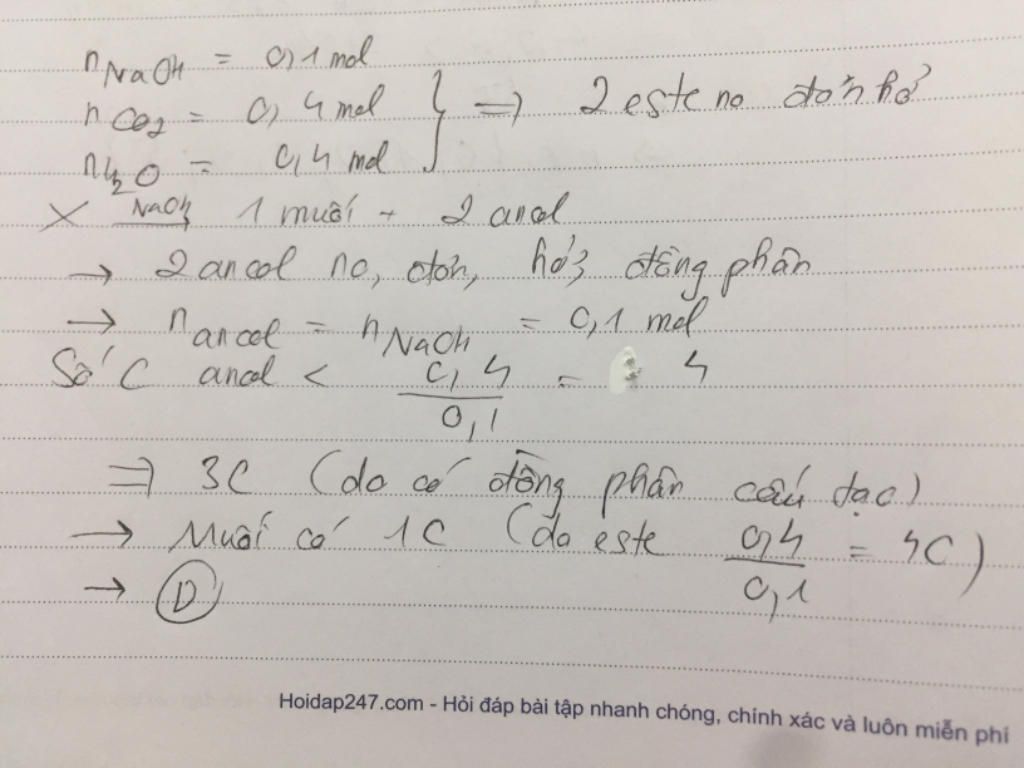 nNaOH = 0,1 mol
nCO2 = 0,4 mol } => 2 este no đơn hở
nH2O = 0,4 mol
X NaOH 1 muối + 2 ancol
→ 2 ancol no, đơn, hở, đồng phân
→ nancol = nNaOH = 0,1 mol
Số C ancol < 0,4 / 0,1 = 4
=> 3C (do có đồng phân cấu tạo)
→ Muối có 1C (do este 0,4 / 0,1 = 4C)
→ D
Hoidap247.com - Hỏi đáp bài tập nhanh chóng, chính xác và luôn miễn phí